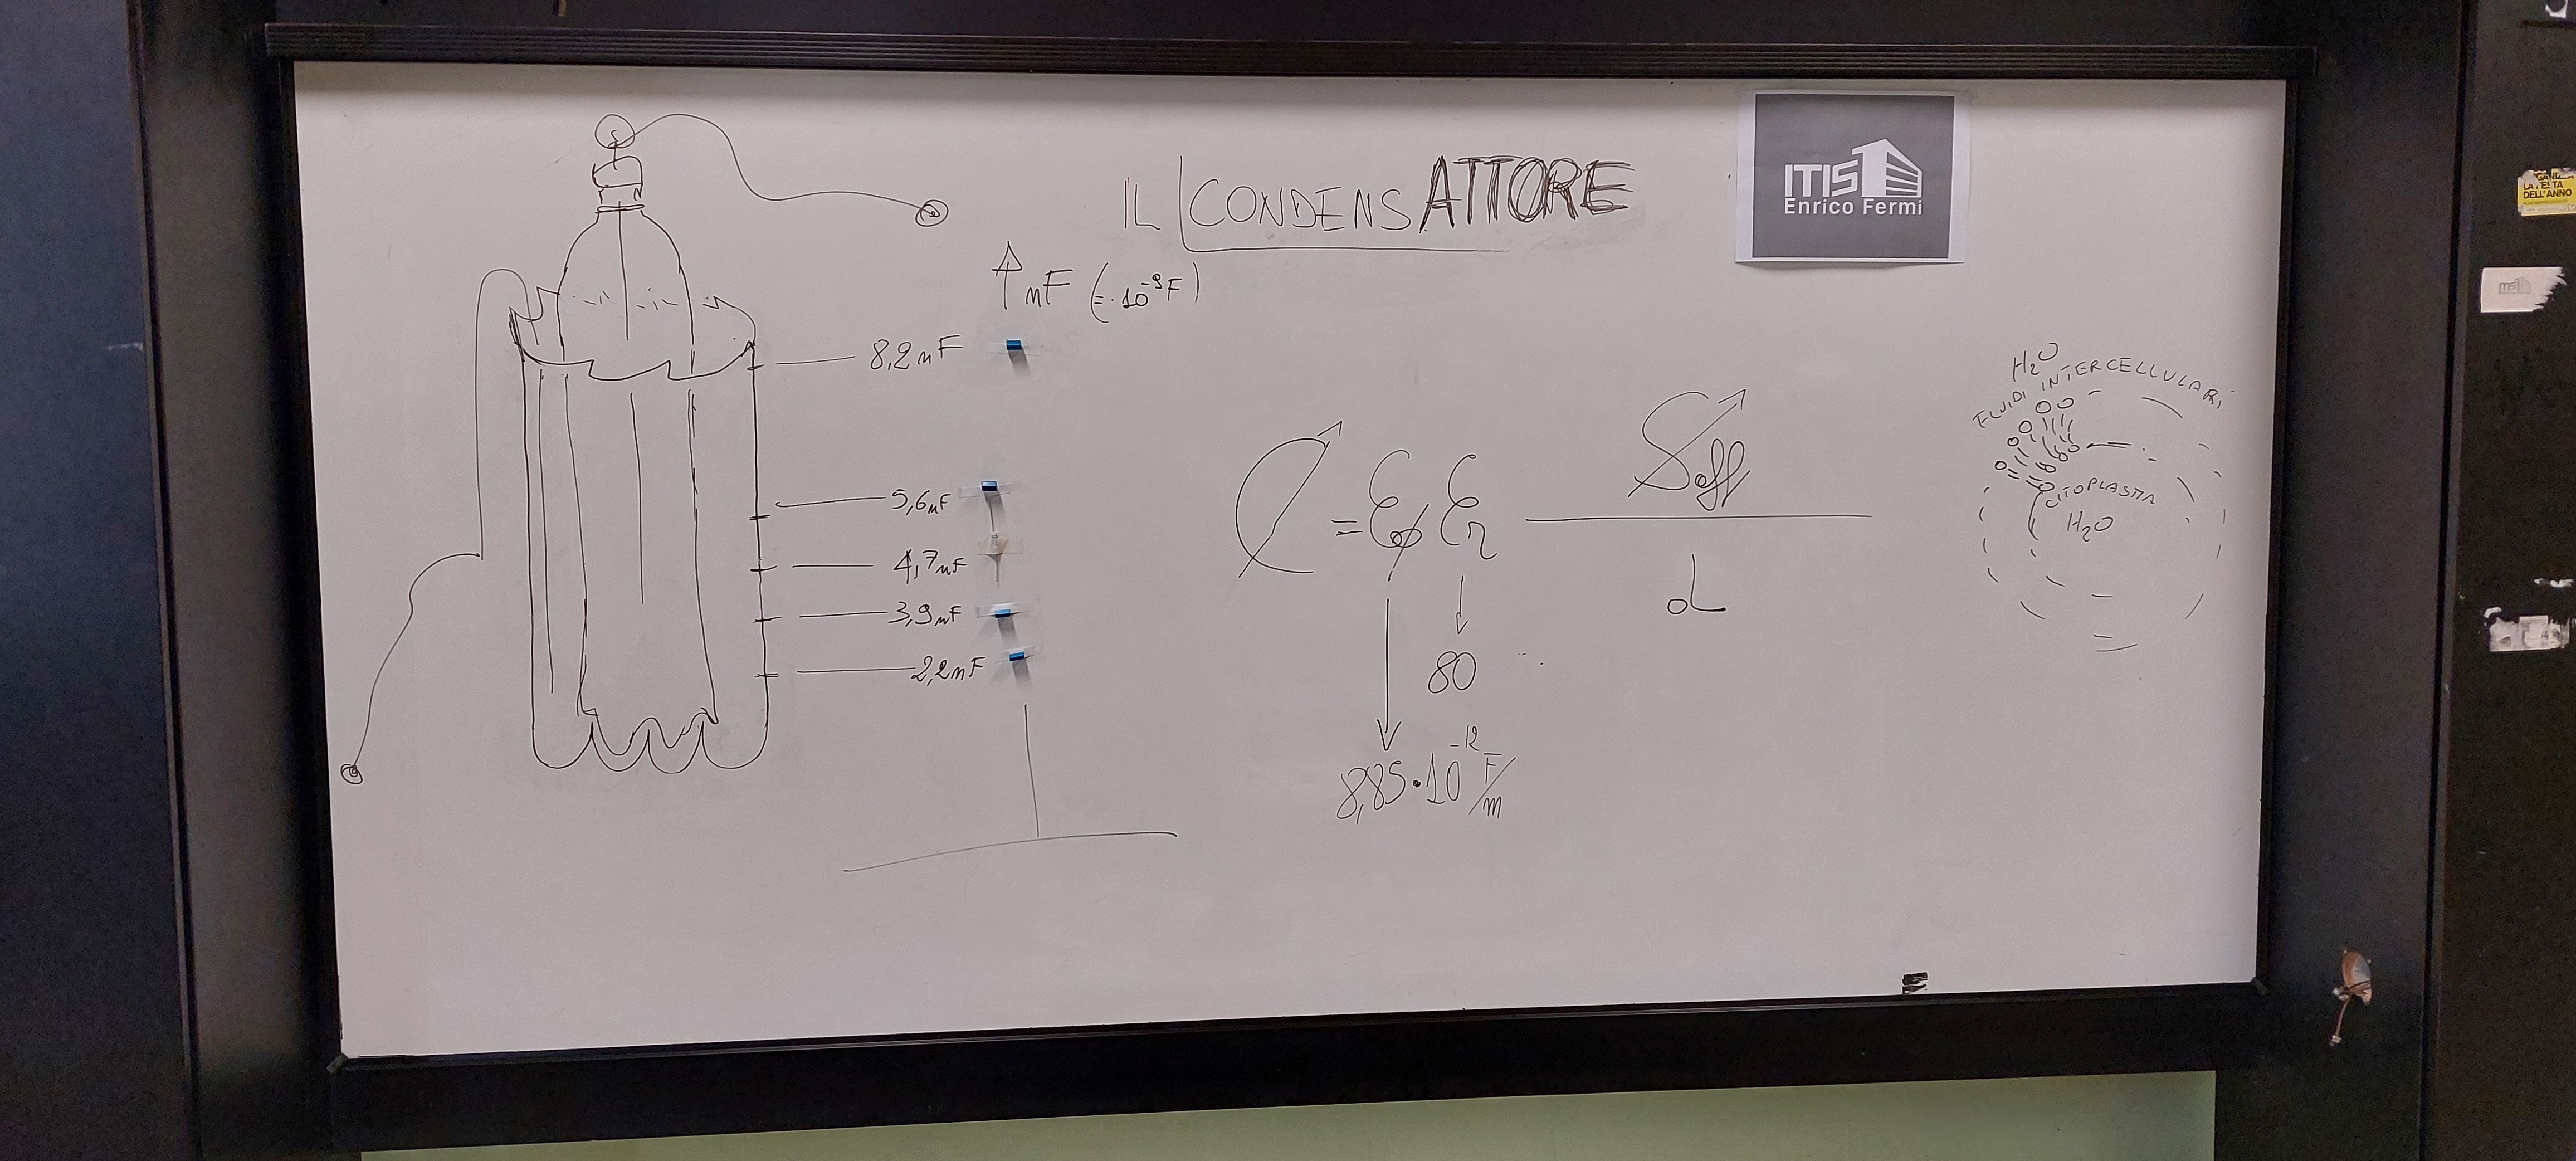 IL CONDENSATTORE
ITIS
Enrico Fermi
nF (= ·10⁻⁹F)
8,2nF
5,6nF
4,7nF
3,9nF
2,2nF
C = ε₀ εr Seff
d
80
8,85·10⁻¹² F/m
H₂O
FLUIDI INTERCELLULARI
CITOPLASMA
H₂O
LA FESTA
DELL'ANNO